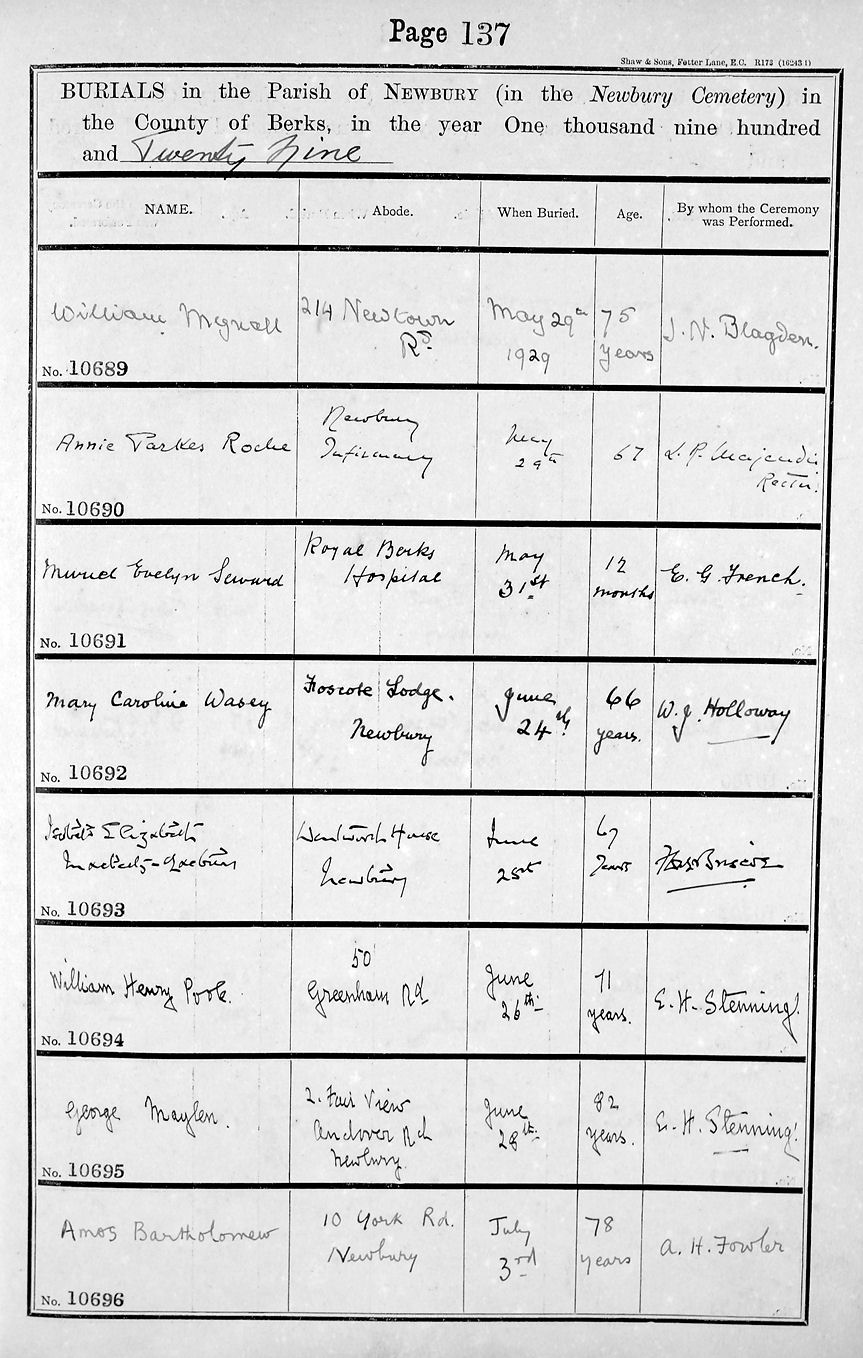 Page 137
Shaw & Sons, Fetter Lane, E.C. R173 (16243 1)
BURIALS in the Parish of NEWBURY (in the Newbury Cemetery) in
the County of Berks, in the year One thousand nine hundred
and Twenty Nine
NAME.
Abode.
When Buried.
Age.
By whom the Ceremony
was Performed.
William
214 Newtown
Rd.
May 29th
1929
75
Years
J. N. Blagden.
No. 10689
Annie Parkes Roche
Newbury
Infirmary
May
29th
67
L. R. Majendie
Rector.
No. 10690
Muriel Evelyn Seward
Royal Berks
Hospital
May
31st
12
months
E. G. French.
No. 10691
Mary Caroline Wasey
Foscote Lodge.
Newbury
June
24th
66
years.
W. J. Holloway
No. 10692
Elizabeth
Wentworth House
Newbury
June
67
Years
No. 10693
William Henry Poole.
50
Greenham Rd
June
26th
71
years.
E. H. Stenning.
No. 10694
George Maylen.
2. Fair View
Andover Rd
Newbury.
June
28th.
82
years.
E. H. Stenning.
No. 10695
Amos Bartholomew
10 York Rd.
Newbury
July
3rd
78
years
A. H. Fowler
No. 10696